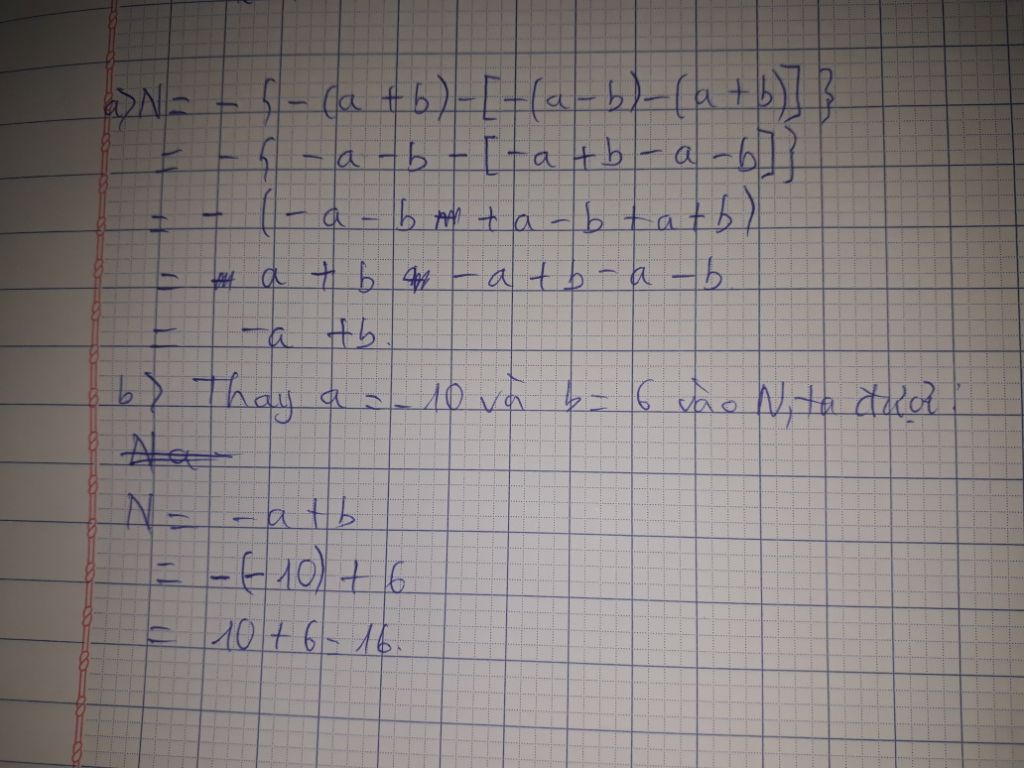 a) N = - { - (a + b) - [ - (a - b) - (a + b)] }
= - { - a - b - [ - a + b - a - b ] }
= - ( - a - b + a - b + a + b )
= a + b - a + b - a - b
= - a + b.
b) Thay a = - 10 và b = 6 vào N, ta được:
N a
N = - a + b
= - (- 10) + 6
= 10 + 6 = 16.